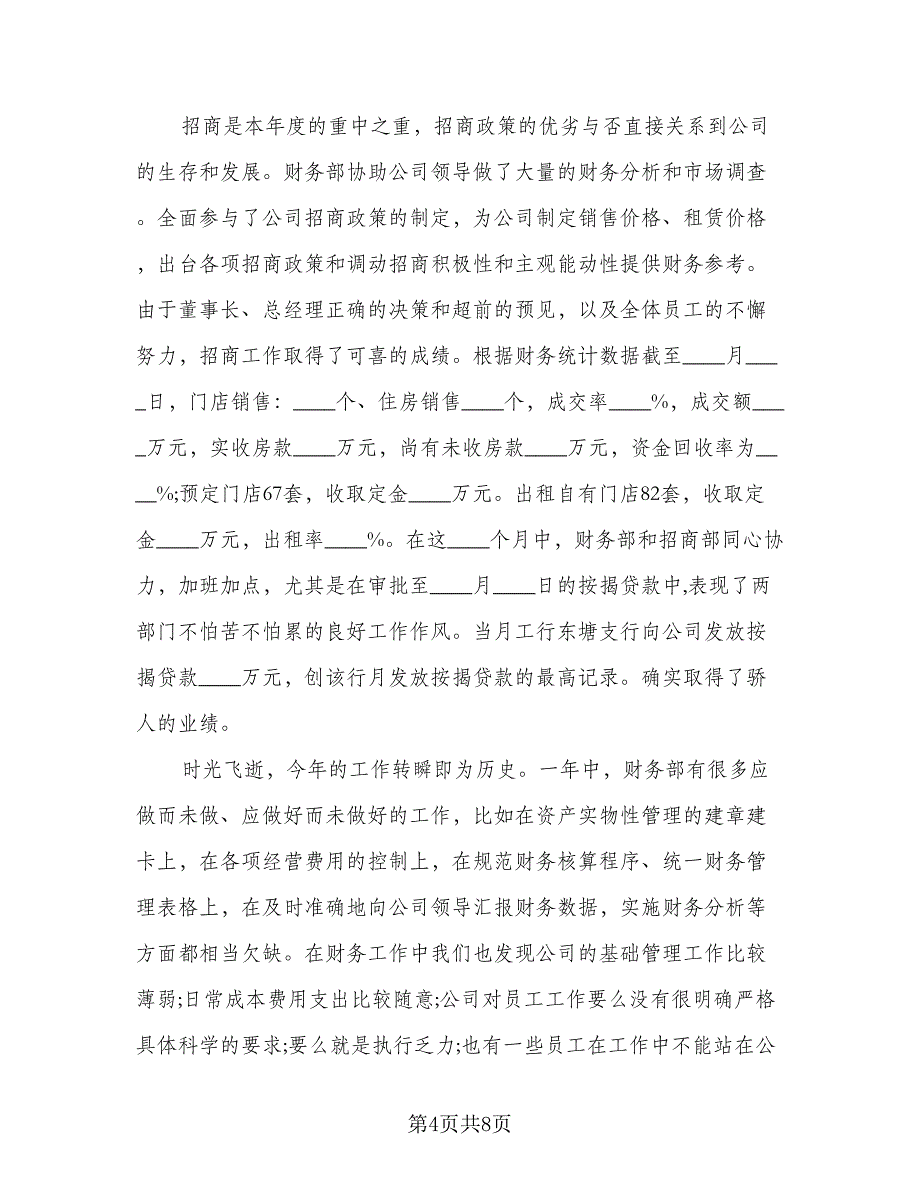 招商是本年度的重中之重，招商政策的优劣与否直接关系到公司
的生存和发展。财务部协助公司领导做了大量的财务分析和市场调查
。全面参与了公司招商政策的制定，为公司制定销售价格、租赁价格
，出台各项招商政策和调动招商积极性和主观能动性提供财务参考。
由于董事长、总经理正确的决策和超前的预见，以及全体员工的不懈
努力，招商工作取得了可喜的成绩。根据财务统计数据截至____月___
_日，门店销售：____个、住房销售____个，成交率____%，成交额___
_万元，实收房款____万元，尚有未收房款____万元，资金回收率为__
__%;预定门店67套，收取定金____万元。出租自有门店82套，收取定
金____万元，出租率____%。在这____个月中，财务部和招商部同心协
力，加班加点，尤其是在审批至____月____日的按揭贷款中,表现了两
部门不怕苦不怕累的良好工作作风。当月工行东塘支行向公司发放按
揭贷款____万元，创该行月发放按揭贷款的最高记录。确实取得了骄
人的业绩。
时光飞逝，今年的工作转瞬即为历史。一年中，财务部有很多应
做而未做、应做好而未做好的工作，比如在资产实物性管理的建章建
卡上，在各项经营费用的控制上，在规范财务核算程序、统一财务管
理表格上，在及时准确地向公司领导汇报财务数据，实施财务分析等
方面都相当欠缺。在财务工作中我们也发现公司的基础管理工作比较
薄弱;日常成本费用支出比较随意;公司对员工工作要么没有很明确严格
具体科学的要求;要么就是执行乏力;也有一些员工在工作中不能站在公
第4页共8页